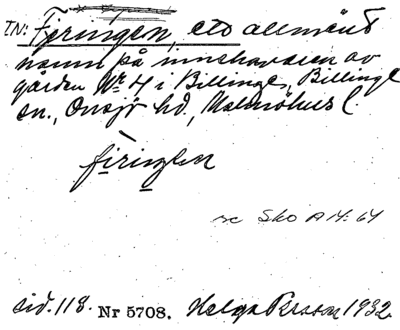 TN: Fyringen, ett allmänt
namn på innehavaren av
gården Nr 4 i Billinge, Billinge
sn., Onsjö hd, Malmöhus l.
firingen
se Sko A 14: 64
sid. 118. Nr 5708. Helga Persson 1932.